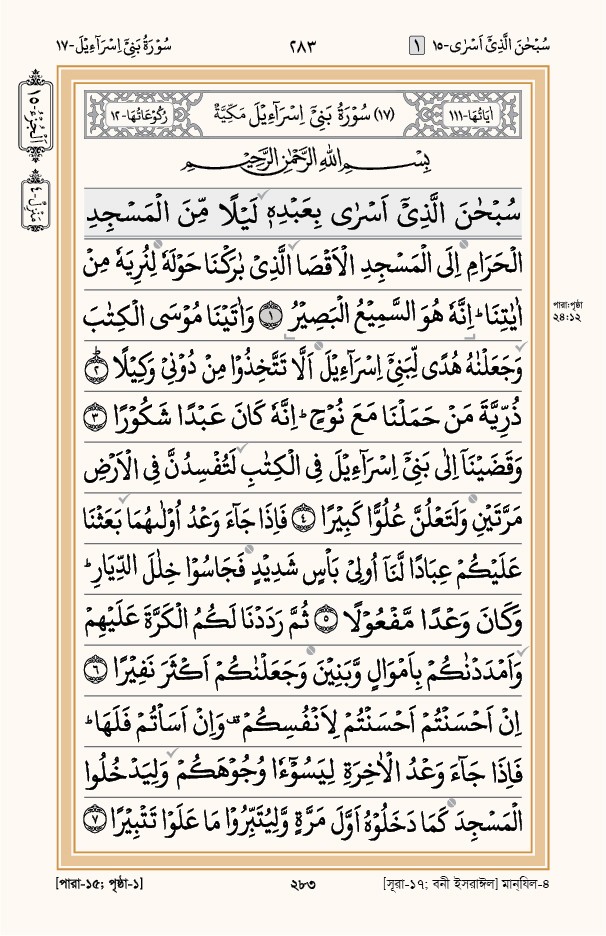 سُبْحٰنَ الَّذِيْٓ اَسْرٰى-١٥ ١
٢٨٣
سُوْرَةُ بَنِيْٓ اِسْرَآءِيْلَ-١٧
اَلْجُزْءُ ١٥
مَنْزِلْ-٤
اٰيَاتُهَا-١١١
(١٧) سُوْرَةُ بَنِيْٓ اِسْرَآءِيْلَ مَكِّيَّةٌ
رُكُوْعَاتُهَا-١٢
بِسْمِ اللّٰهِ الرَّحْمٰنِ الرَّحِيْمِ
سُبْحٰنَ الَّذِيْٓ اَسْرٰى بِعَبْدِهٖ لَيْلًا مِّنَ الْمَسْجِدِ
الْحَرَامِ اِلَى الْمَسْجِدِ الْاَقْصَا الَّذِيْ بٰرَكْنَا حَوْلَهٗ لِنُرِيَهٗ مِنْ
اٰيٰتِنَا ؕ اِنَّهٗ هُوَ السَّمِيْعُ الْبَصِيْرُ ۝١ وَاٰتَيْنَا مُوْسَى الْكِتٰبَ
وَجَعَلْنٰهُ هُدًى لِّبَنِيْٓ اِسْرَآءِيْلَ اَلَّا تَتَّخِذُوْا مِنْ دُوْنِيْ وَكِيْلًا ۝٢ؕ
ذُرِّيَّةَ مَنْ حَمَلْنَا مَعَ نُوْحٍ ؕ اِنَّهٗ كَانَ عَبْدًا شَكُوْرًا ۝٣
وَقَضَيْنَآ اِلٰى بَنِيْٓ اِسْرَآءِيْلَ فِى الْكِتٰبِ لَتُفْسِدُنَّ فِى الْاَرْضِ
مَرَّتَيْنِ وَلَتَعْلُنَّ عُلُوًّا كَبِيْرًا ۝٤ فَاِذَا جَآءَ وَعْدُ اُوْلٰىهُمَا بَعَثْنَا
عَلَيْكُمْ عِبَادًا لَّنَآ اُولِيْ بَاْسٍ شَدِيْدٍ فَجَاسُوْا خِلٰلَ الدِّيَارِ ؕ
وَكَانَ وَعْدًا مَّفْعُوْلًا ۝٥ ثُمَّ رَدَدْنَا لَكُمُ الْكَرَّةَ عَلَيْهِمْ
وَاَمْدَدْنٰكُمْ بِاَمْوَالٍ وَّبَنِيْنَ وَجَعَلْنٰكُمْ اَكْثَرَ نَفِيْرًا ۝٦
اِنْ اَحْسَنْتُمْ اَحْسَنْتُمْ لِاَنْفُسِكُمْ ۫ وَاِنْ اَسَاْتُمْ فَلَهَا ؕ
فَاِذَا جَآءَ وَعْدُ الْاٰخِرَةِ لِيَسُوْٓءٗا وُجُوْهَكُمْ وَلِيَدْخُلُوا
الْمَسْجِدَ كَمَا دَخَلُوْهُ اَوَّلَ مَرَّةٍ وَّلِيُتَبِّرُوْا مَا عَلَوْا تَتْبِيْرًا ۝٧
পারা:পৃষ্ঠা
২৪:১২
[পারা-১৫; পৃষ্ঠা-১]
২৮৩
[সূরা-১৭; বনী ইসরাঈল] মান্‌যিল-৪